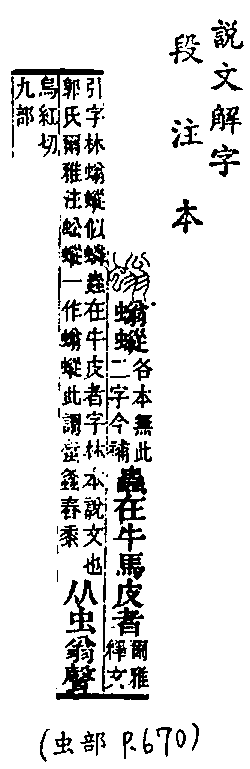 說文解字
段注本
螉䗥
各本無此
二字今補
蟲在牛馬皮者
爾雅
釋文
引字林螉䗥似蟲在牛皮者字林本說文也
郭氏爾雅注蚣䗥一作螉䗥此謂螽舂黍
从虫翁聲
烏紅切
九部
(虫部 P.670)